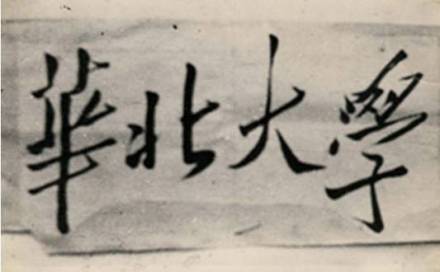 華北大學